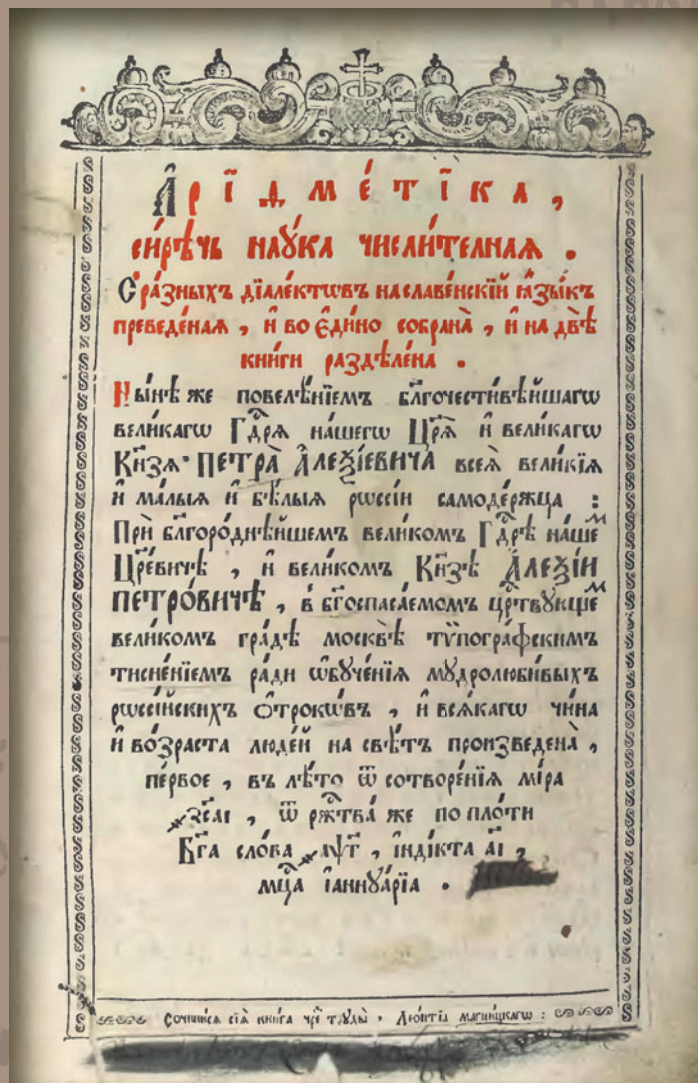 А҆рїѳме́тїка,
си́рѣчь наꙋ́ка числи́телнаѧ.
С̾ ра́зныхъ дїале́ктѡвъ на славе́нскїй ꙗ҆зы́къ
преведе́наѧ, и҆ во є҆ди́но собрана̀, и҆ на двѣ̀
кни́ги раздѣле́на.
Ны́нѣ же повелѣ́нїемъ бл҃гочести́вѣйшагѡ
вели́кагѡ Гдⷭ҇рѧ на́шегѡ Цр҃ѧ̀ и҆ вели́кагѡ
Кн҃зѧ ПЕТРА̀ А҆ЛЕѮІ́ЕВИЧА всеѧ̀ вели́кїѧ
и҆ ма́лыѧ и҆ бѣ́лыѧ рѡссі́и самоде́ржца:
Прѝ бл҃горо́днѣйшемъ вели́комъ Гдⷭ҇рѣ на́шеⷨ
Цр҃е́вичѣ, и҆ вели́комъ Кн҃зѣ А҆ЛЕѮІ́И
ПЕТРО́ВИЧѢ, в̾ бг҃оспаса́емомъ црⷭ҇твꙋющеⷨ
вели́комъ гра́дѣ москвѣ̀ тѷпогра́фскимъ
тисне́нїемъ ра́ди ѡ҆бꙋче́нїѧ мꙋдролюби́выхъ
рѡссі́йскихъ ѻ҆́трокѡвъ, и҆ всѧ́кагѡ чи́на
и҆ во́зраста люде́й на свѣ́тъ произведена̀,
пе́рвое, въ лѣ́то ѿ сотворе́нїѧ мі́ра
҂зсаі, ѿ рждⷭ҇тва́ же по пло́ти
Бг҃а сло́ва ҂аѱг, і҆ндї́кта аі,
мцⷭ҇а і҆аннꙋа́рїѧ.
Сочини́сѧ сїѧ̀ кни́га чреⷥ трꙋды̀ Лео́нтїа магни́цкагѡ: